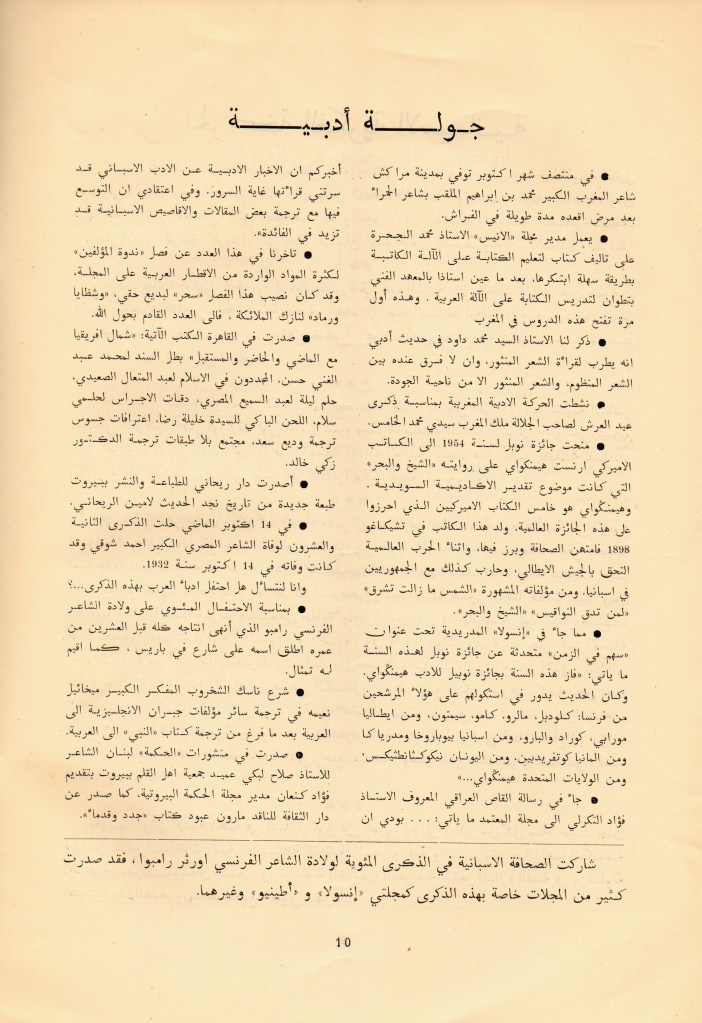 جولة أدبية
● في منتصف شهر اكتوبر توفي بمدينة مراكش
شاعر المغرب الكبير محمد بن ابراهيم الملقب بشاعر الحمراء
بعد مرض اقعده مدة طويلة في الفراش.
● يعمل مدير مجلة «الانيس» الاستاذ محمد الجحرة
على تاليف كتاب لتعليم الكتابة على الآلة الكاتبة
بطريقة سهلة ابتكرها، بعد ما عين استاذا بالمعهد الفني
بتطوان لتدريس الكتابة على الآلة العربية . وهذه أول
مرة تفتح هذه الدروس في المغرب
● ذكر لنا الاستاذ السيد محمد داود في حديث أدبي
انه يطرب لقراءة الشعر المنثور، وان لا فرق عنده بين
الشعر المنظوم، والشعر المنثور الا من ناحية الجودة.
● نشطت الحركة الادبية المغربية بمناسبة ذكرى
عيد العرش لصاحب الجلالة ملك المغرب سيدي محمد الخامس.
● منحت جائزة نوبل لسنة 1954 الى الكاتب
الاميركي ارنست هيمنكواي على روايته «الشيخ والبحر»
التي كانت موضوع تقدير الاكاديمية السويدية .
وهيمنكواي هو خامس الكتاب الاميركيين الذي احرزوا
على هذه الجائزة العالمية. ولد هذا الكاتب في تشيكاغو
1898 فامتهن الصحافة وبرز فيها، واثناء الحرب العالمية
التحق بالجيش الايطالي، وحارب كذلك مع الجمهوريين
في اسبانيا. ومن مؤلفاته المشهورة «الشمس ما زالت تشرق»
«لمن تدق النواقيس» «الشيخ والبحر».
● مما جاء في «إنسولا» المدريدية تحت عنوان
«سهم في الزمن» متحدثة عن جائزة نوبل لهذه السنة
ما ياتي: «فاز هذه السنة بجائزة نوبيل للادب هيمنكواي.
وكان الحديث يدور في استكولهم على هؤلاء المرشحين
من فرنسا: كلوديل، مالرو، كامو، سيمنون، ومن ايطاليا
مورابي، كوراد والبارو، ومن اسبانيا بيوباروخا ومدرياكا
ومن المانيا كوتفريدبين، ومن اليونان نيكوكثانطثيكس،
ومن الولايات المتحدة هيمنكواي...»
● جاء في رسالة القاص العراقي المعروف الاستاذ
فؤاد التكرلي الى مجلة المعتمد ما ياتي: . . . بودي ان
أخبركم ان الاخبار الادبية عن الادب الاسباني قد
سرتني قراءتها غاية السرور. وفي اعتقادي ان التوسع
فيها مع ترجمة بعض المقالات والاقاصيص الاسبانية قد
تزيد في الفائدة».
● تاخرنا في هذا العدد عن فصل «ندوة المؤلفين»
لكثرة المواد الواردة من الاقطار العربية على المجلة،
وقد كان نصيب هذا الفصل «سحر» لبديع حقي، «وشظايا
ورماد» لنازك الملائكة . فالى العدد القادم بحول الله.
● صدرت في القاهرة الكتب الآتية: «شمال افريقيا
مع الماضي والحاضر والمستقبل» بطل السند لمحمد عبد
الغني حسن، المجددون في الاسلام لعبد المتعال الصعيدي،
حلم ليلة لعبد السميع المصري، دقات الاجراس لحلمي
سلام، اللحن الباكي للسيدة خليلة رضا، اعترافات جسوس
ترجمة وديع سعد، مجتمع بلا طبقات ترجمة الدكتور
زكي خالد.
● أصدرت دار ريحاني للطباعة والنشر ببيروت
طبعة جديدة من تاريخ نجد الحديث لامين الريحاني.
● في 14 اكتوبر الماضي حلت الذكرى الثانية
والعشرون لوفاة الشاعر المصري الكبير احمد شوقي وقد
كانت وفاته في 14 اكتوبر سنة 1932.
وانا لنتساءل هل احتفل ادباء العرب بهذه الذكرى...؟
● بمناسبة الاحتفال المئوي على ولادة الشاعر
الفرنسي رامبو الذي أنهى انتاجه كله قبل العشرين من
عمره اطلق اسمه على شارع في باريس ، كما اقيم
له تمثال.
● شرع ناسك الشخروب المفكر الكبير ميخائيل
نعيمه في ترجمة سائر مؤلفات جبران الانجليزية الى
العربية بعد ما فرغ من ترجمة كتاب «النبي» الى العربية.
● صدرت في منشورات «الحكمة» لبنان الشاعر
للاستاذ صلاح لبكي عميد جمعية اهل القلم ببيروت بتقديم
فؤاد كنعان مدير مجلة الحكمة البيروتية، كما صدر عن
دار الثقافة للناقد مارون عبود كتاب «جدد وقدماء».
شاركت الصحافة الاسبانية في الذكرى المئوية لولادة الشاعر الفرنسي اورثر رامبوا ، فقد صدرت
كثير من المجلات خاصة بهذه الذكرى كمجلتي «إنسولا» و «أطينيو» وغيرهما.
10